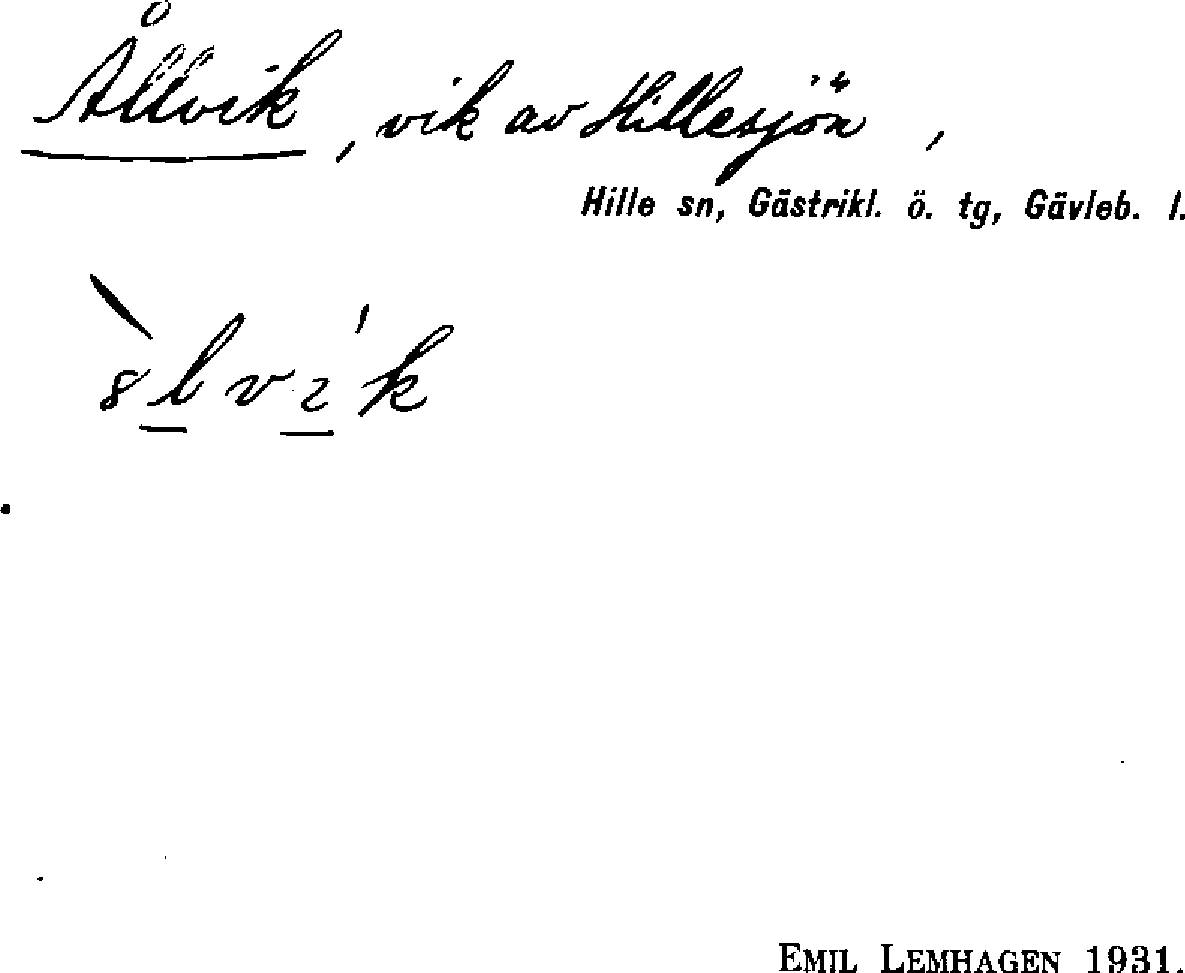 Ållvik, vik av Hillesjön,
Hille sn, Gästrikl. ö. tg, Gävleb. l.
EMIL LEMHAGEN 1931.